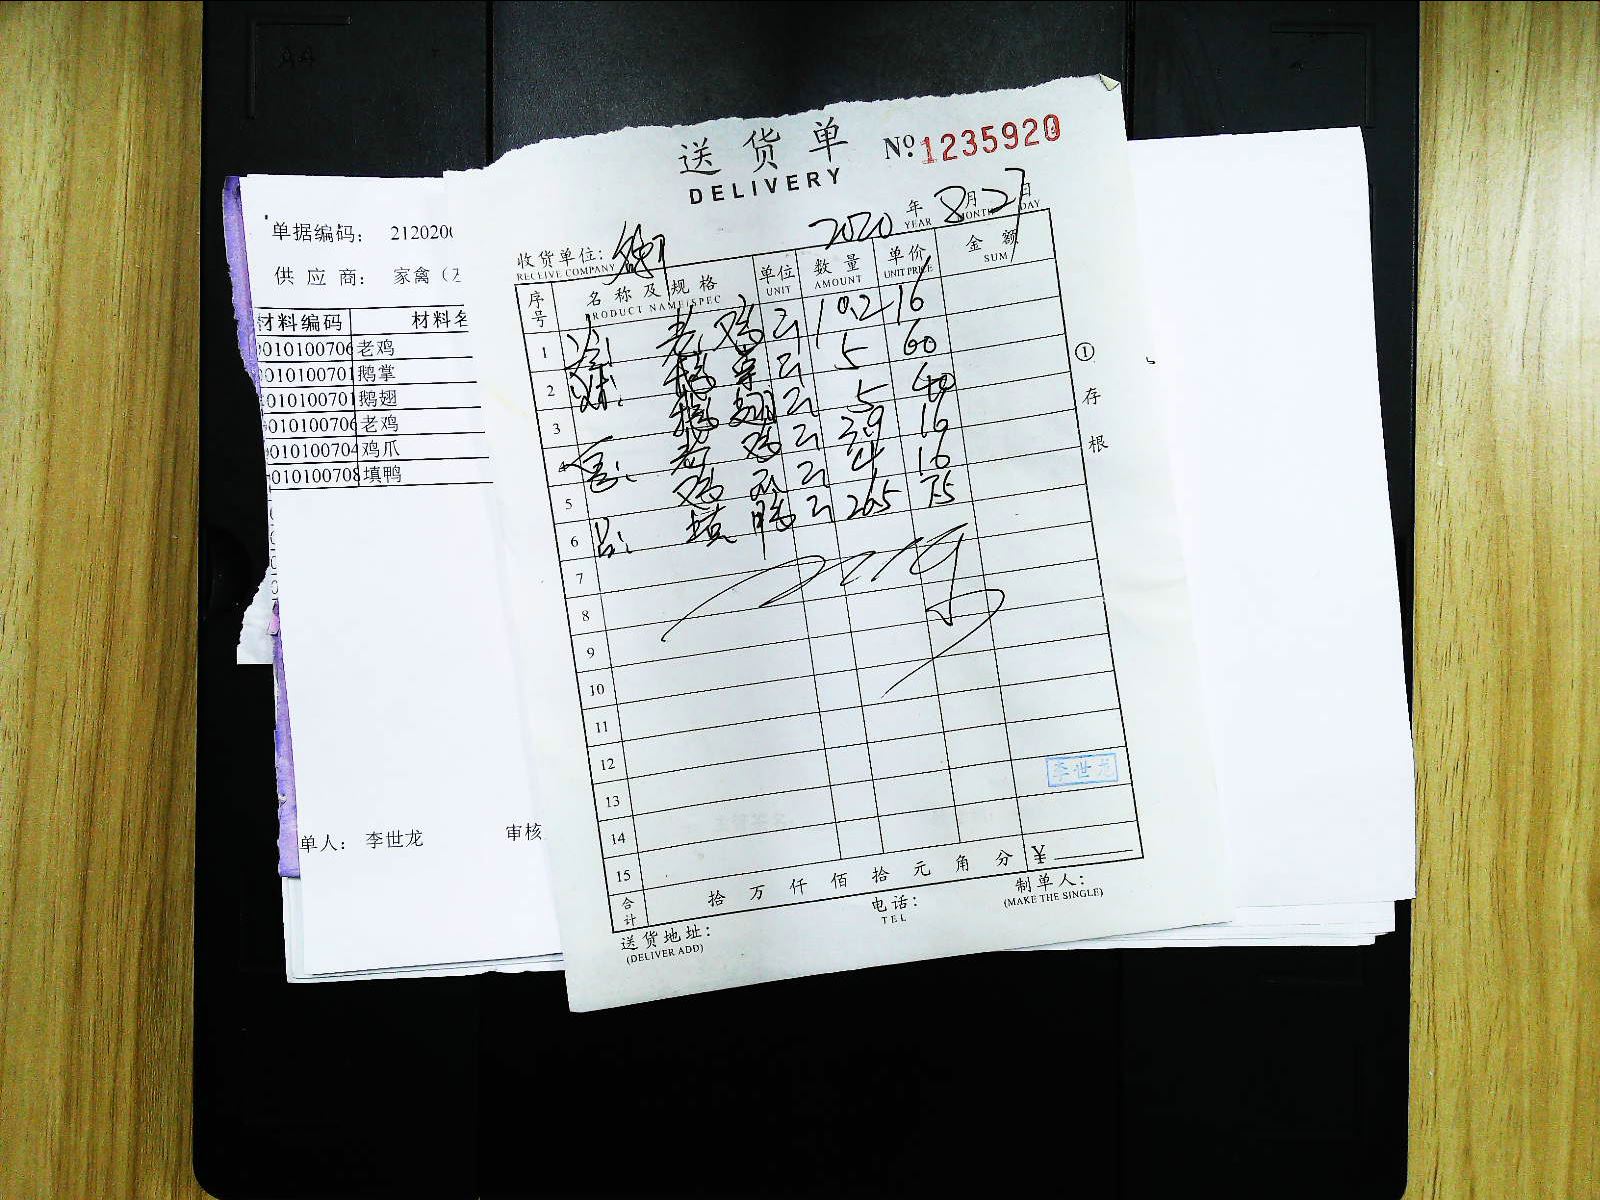 送货单
DELIVERY
№ 1235920
2020 年 8 月 27 日
YEAR MONTH DAY
收货单位:
RECEIVE COMPANY
序号 名称及规格 单位 数量 单价 金额
PRODUCT NAME/SPEC UNIT AMOUNT UNIT PRICE SUM
1 老鸡 斤 10.2 16
2 鹅掌 斤 5 60
3 鹅翅 斤 5 40
4 老鸡 斤 39 16
5 鸡爪 斤 4 16
6 填鸭 斤 265 7.5
7
8
9
10
11
12
13
14
15
李世龙
合计 拾 万 仟 佰 拾 元 角 分 ¥
送货地址:
(DELIVER ADD)
电话:
TEL
制单人:
(MAKE THE SINGLE)
① 存根
单据编码: 2120200
供应商: 家禽（
材料编码 材料名
010100706 老鸡
010100701 鹅掌
010100701 鹅翅
010100706 老鸡
010100704 鸡爪
010100708 填鸭
单人: 李世龙
审核